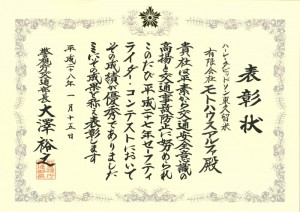 表彰状
ハーレーダビッドソン東久留米
有限会社モトハウスアルプス殿
貴社は平素から交通安全意識の
高揚と交通事故防止に努められ
このたび平成二十七年セーフティ
ライダーコンテストにおいて
その成績が優秀でありました
よってその成果を称え表彰します
平成二十八年一月十五日
警視庁交通部長大澤裕之